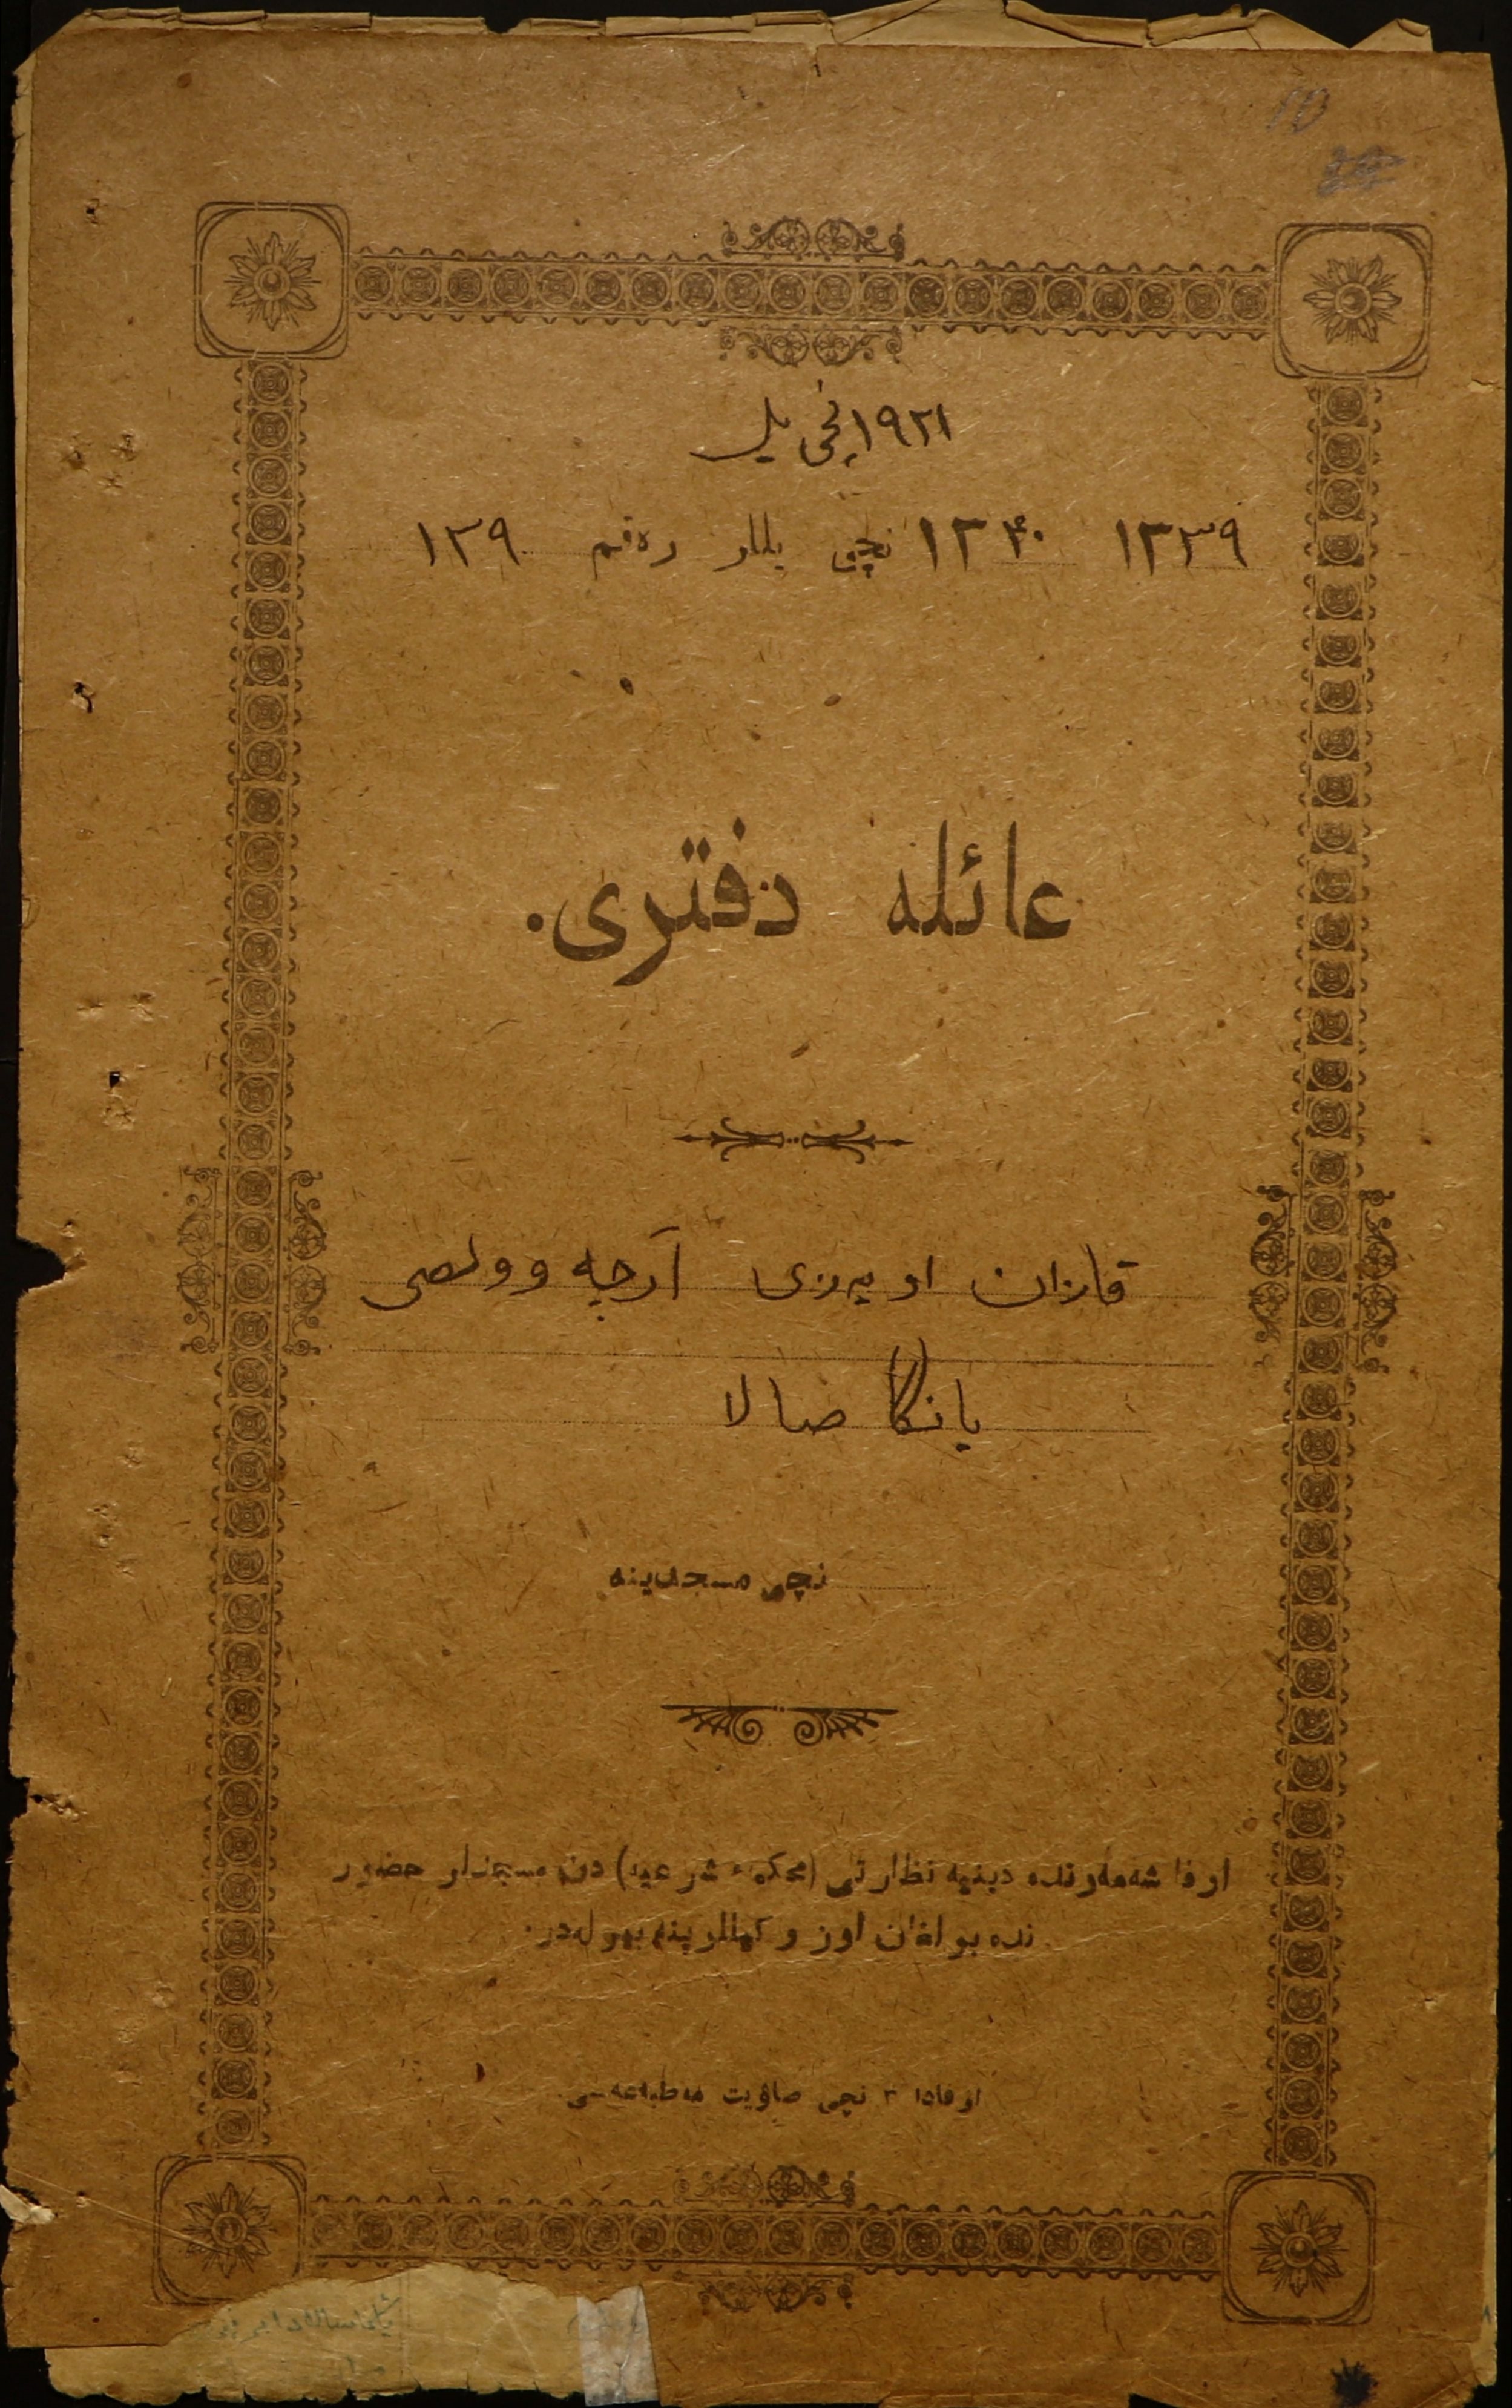 10
١٩٢١ نچی یل
١٣٣٩ ١٣٤٠ نچی یللر رەقم ١٣٩
عائله دفتری.
قازان اویەزی آرچه وولصی
یانگا صالا
نچی مسجدینه
اوفا شەهەرنده دینیه نظارتی (محکمهٔ شرعیه) دن مسجدلر حضور
نده بولغان اوز وکیللرینه بیولەدر.
اوفادا ٣ نچی صاویت مەطبەعەسی.